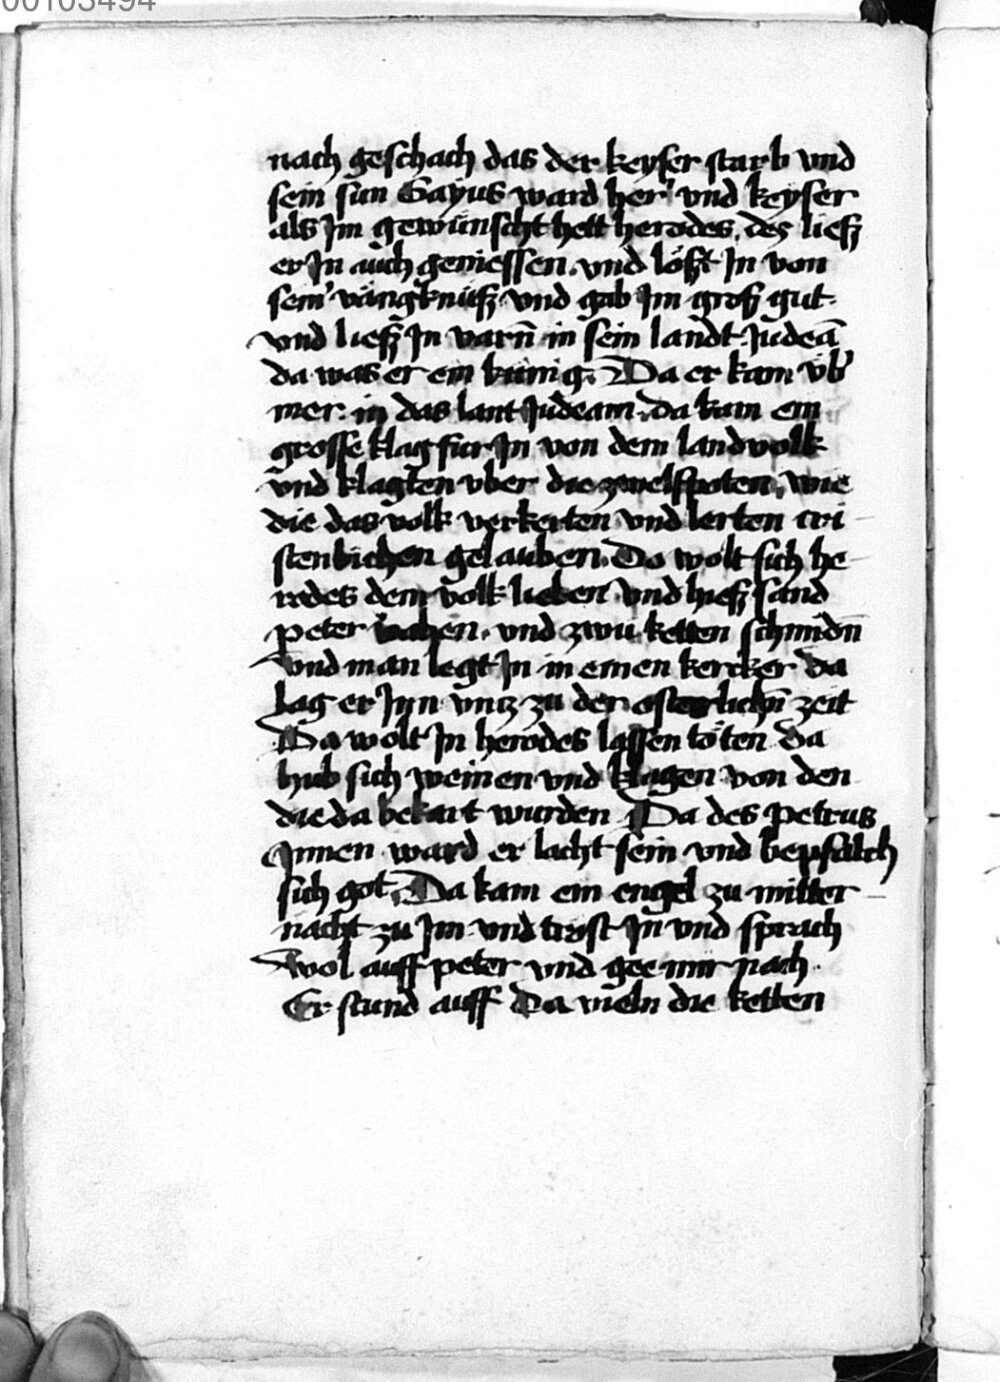 00103494
nach geschach das der keyser starb vnd
sein sun Gayus ward her' vnd keyser
als Im gewünscht hett herodes. des ließ
er In auch geniessen. vnd lößt In von
sein' vängknüß vnd gab Im groß gut.
vnd ließ In varn̄ in sein landt Judeā
da was er ein künig. Da er kam vb'
mer. in das lant Judeam. da kam ein
grosse klag fur In von dem landvolk
vnd klagten vber die zwelfpoten, wie
die das volk verkerten vnd lerten cri
stenlichen gelauben. Do wolt sich he
rodes dem volk lieben vnd hieß sand
peter vahen. vnd zwu ketten schmidn
vnd man legt In in einen kercker da
lag er Inn vntz zu der osterlichn̄ zeit
Da wolt In herodes lassen töten da
hub sich weinen vnd klagen von den
die da bekart wurden Da des Petrus
Innen ward er lacht sein vnd bepfalch
sich got. Da kam ein engel zu mitter
nacht zu Im vnd trost In vnd sprach
wol auff peter vnd gee mir nach.
Er stund auff Da vieln die ketten